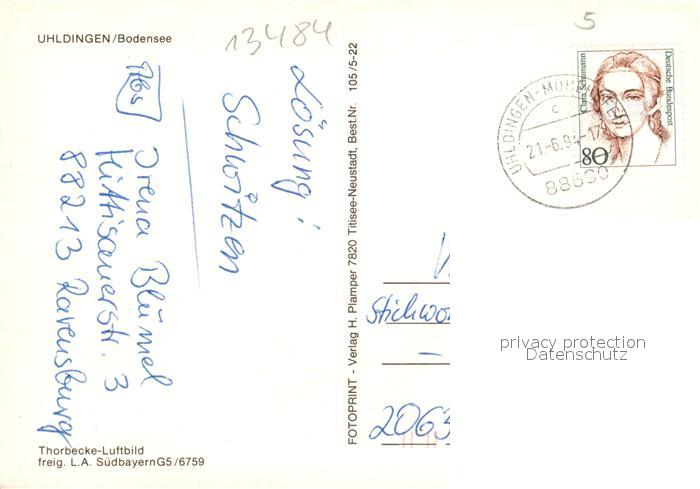 UHLDINGEN/Bodensee
13484
Lösung:
Schwitzen
Abs
Irena Blümel
Hittisauerstr. 3
88213 Ravensburg
Thorbecke-Luftbild
freig. L.A. Südbayern G5/6759
FOTOPRINT - Verlag H. Plamper 7820 Titisee-Neustadt, Best.Nr. 105/5-22
5
Clara Schumann
Deutsche Bundespost
80
UHLDINGEN-MÜHLHOFEN
c
21.-6.94-17
88690
Stichwo
2063
privacy protection
Datenschutz